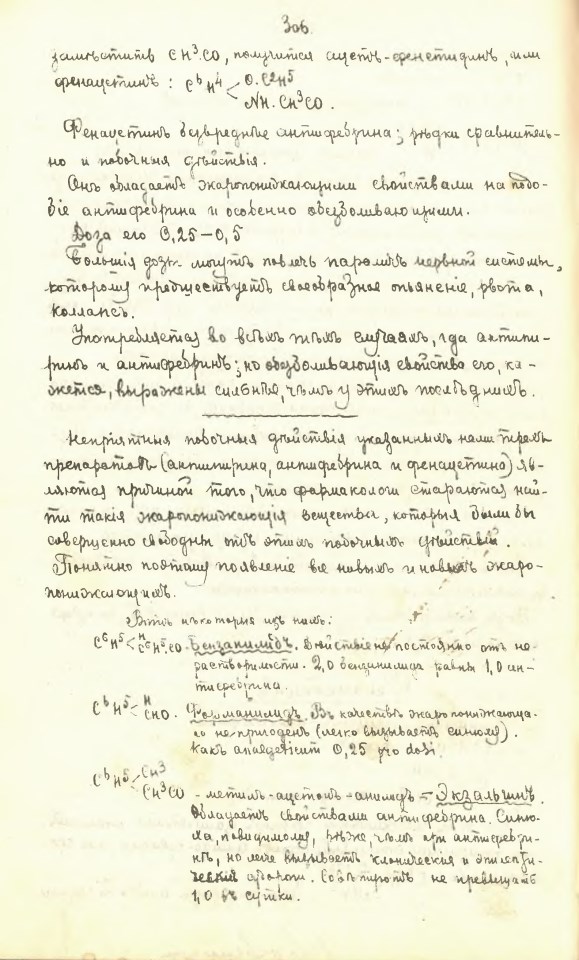 306.
замѣстить CH³.CO, получится ацетъ-фенетидинъ, или
фенацетинъ: C⁶H⁴ < O.C²H⁵
NH.CH³CO.
Фенацетинъ безвреднѣе антифебрина; рѣдки сравнитель-
но и побочныя дѣйствія.
Онъ обладаетъ жаропонижающими свойствами на подо-
біе антифебрина и особенно обезболивающими.
Доза его 0,25—0,5
Большія дозы могутъ повлечь параличъ нервной системы,
которому предшествуетъ своеобразное опьяненіе, рвота,
коллапсъ.
Употребляется во всѣхъ тѣхъ случаяхъ, гдѣ антипи-
ринъ и антифебринъ; но обезболивающія свойства его, ка-
жется, выражены сильнѣе, чѣмъ у этихъ послѣднихъ.
Непріятныя побочныя дѣйствія указанныхъ нами трехъ
препаратовъ (антипирина, антифебрина и фенацетина) яв-
ляются причиной того, что фармакологи стараются най-
ти такія жаропонижающія вещества, которыя были бы
совершенно свободны отъ этихъ побочныхъ дѣйствій.
Понятно поэтому появленіе все новыхъ и новыхъ жаро-
понижающихъ.
Вотъ нѣкоторыя изъ нихъ:
C⁶H⁵ < H C⁶H⁵.CO Бензанилидъ. Дѣйствіе не постоянно отъ не-
растворимости. 2,0 бензанилида равны 1,0 ан-
тифебрина.
C⁶H⁵ < H CHO. Форманилидъ. Въ качествѣ жаропонижающа-
го не пригоденъ (легко вызываетъ синюху).
Какъ analgeticum 0,25 pro dosi.
C⁶H⁵ < CH³
CH³CO - метилъ-ацетонъ-анилидъ = Экзальгинъ.
Обладаетъ свойствами антифебрина. Синю-
ха, повидимому, рѣже, чѣмъ при антифебри-
нѣ, но легче вызываетъ клоническія и эпилепти-
ческія судороги. Совѣтуютъ не превышать
1,0 въ сутки.